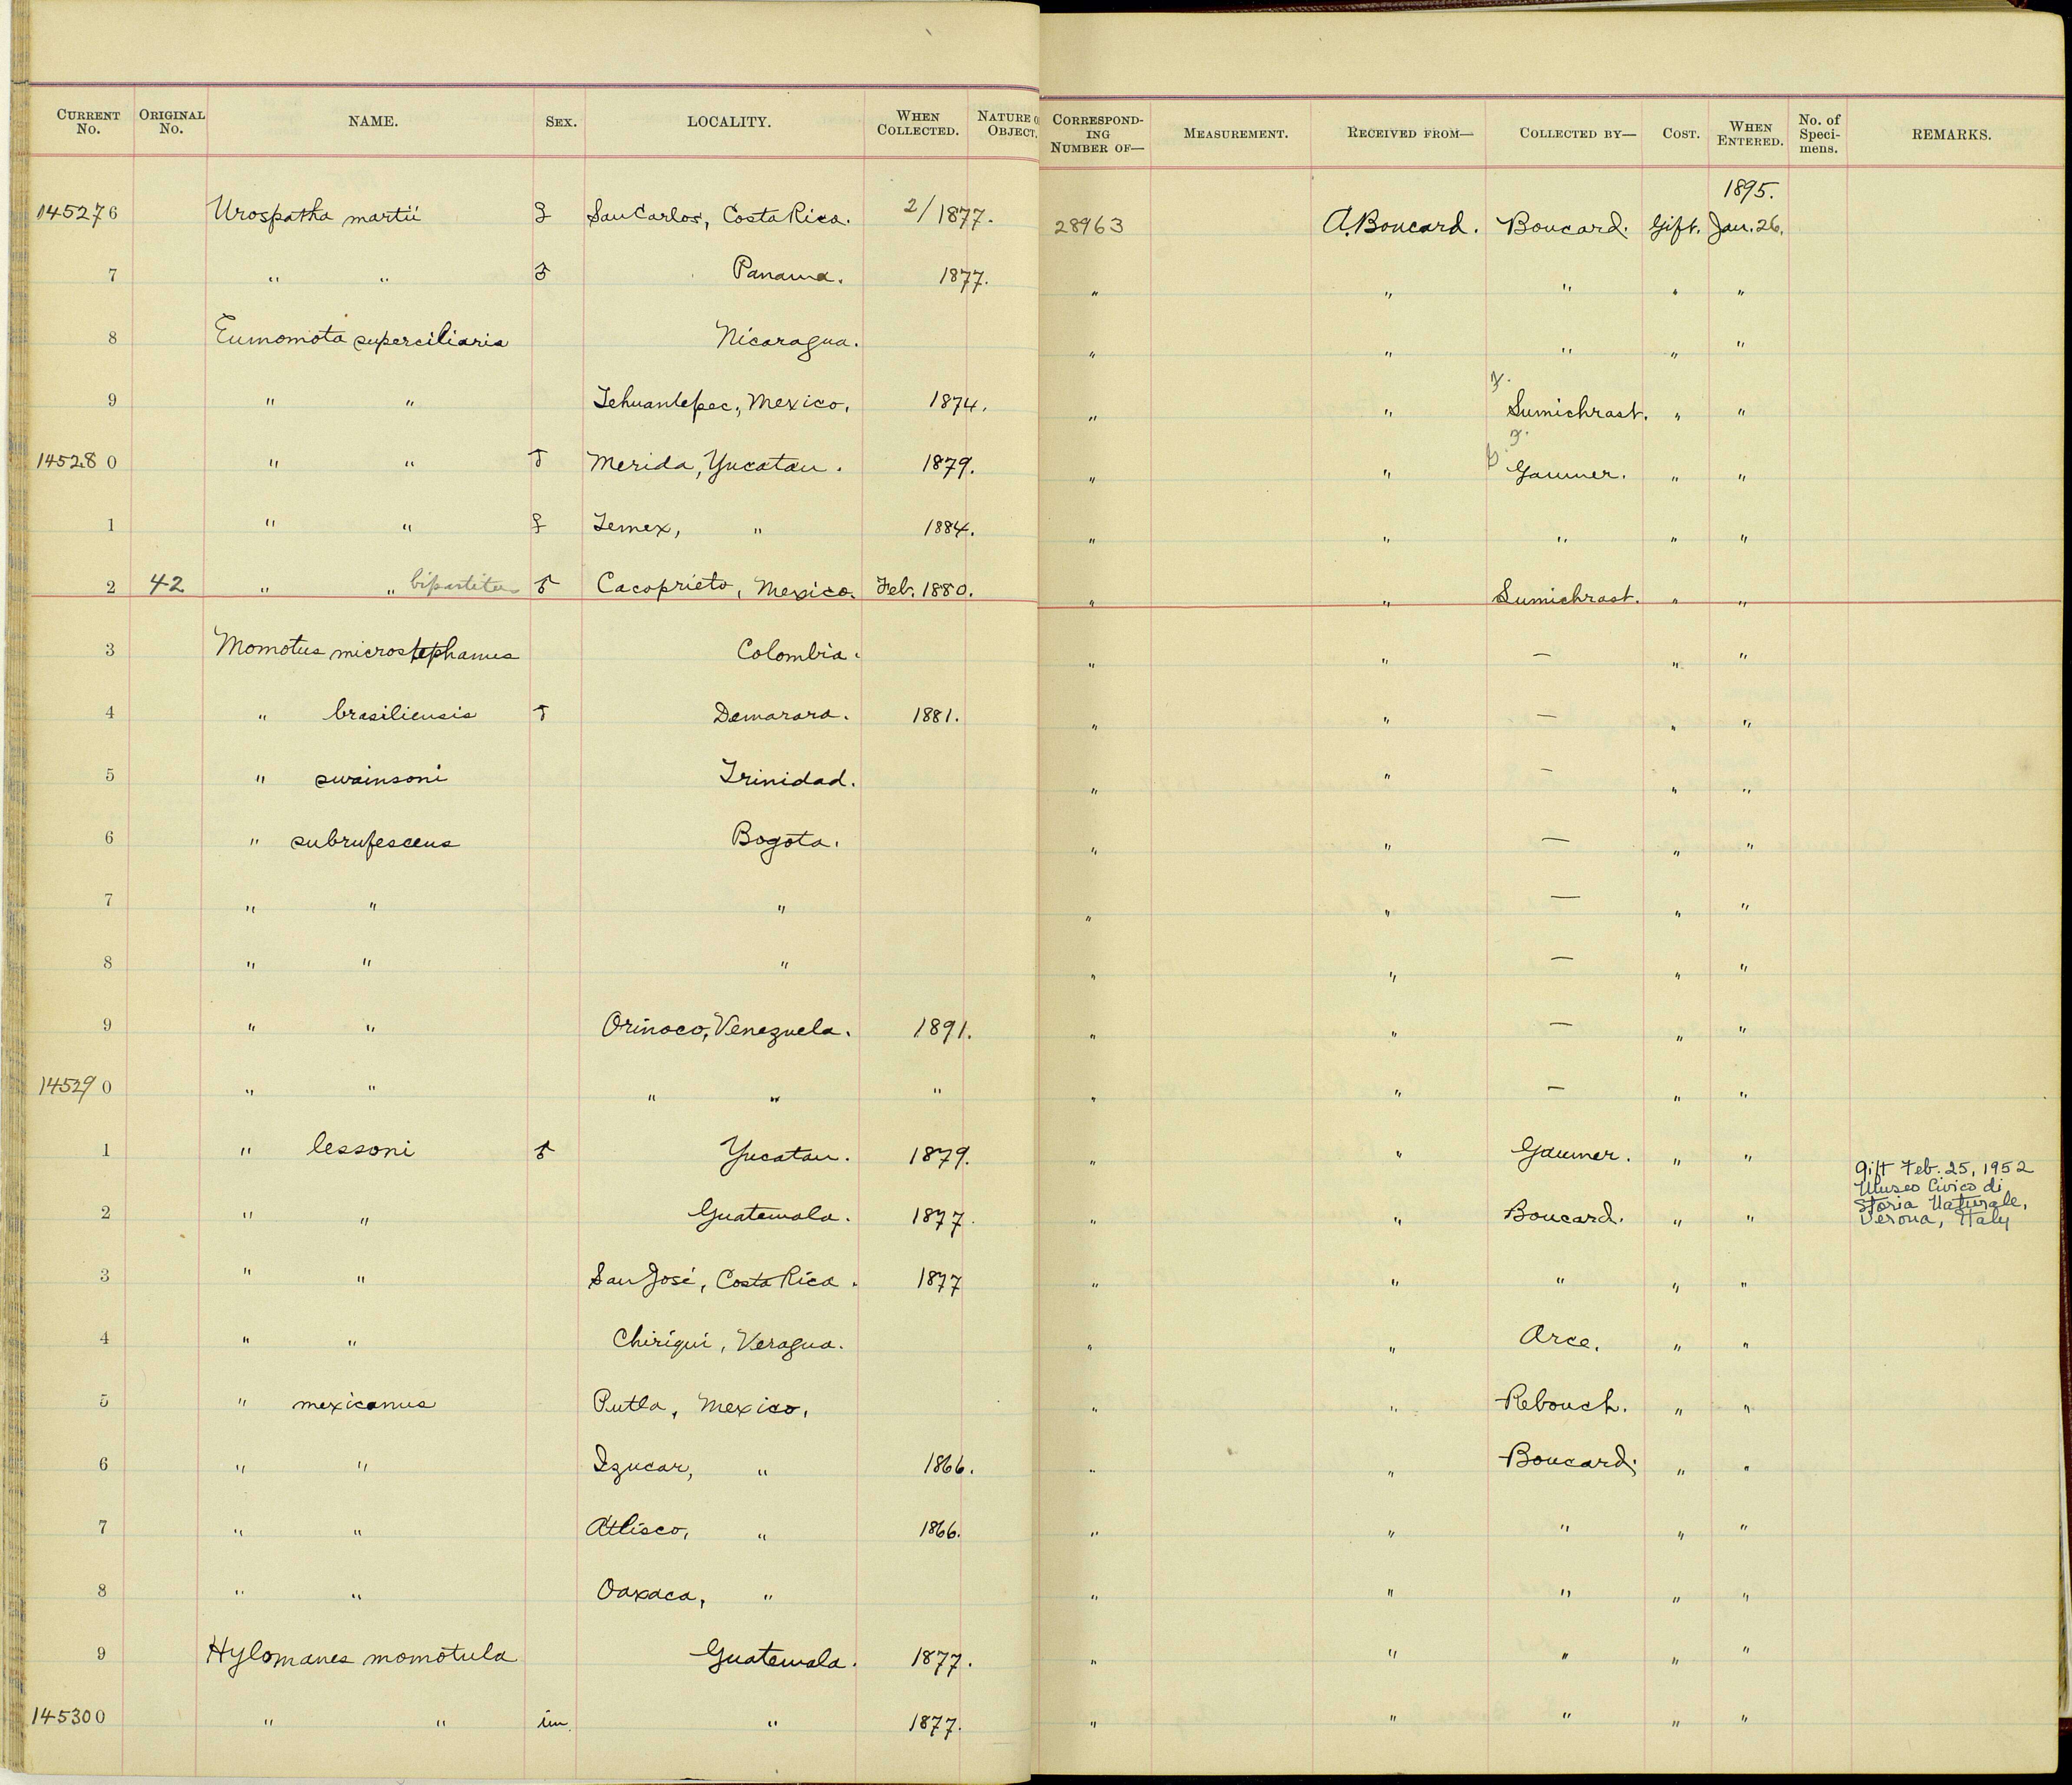 CURRENT No. ORIGINAL No. NAME. SEX. LOCALITY. WHEN COLLECTED. NATURE O OBJECT. CORRESPOND-ING NUMBER OF— MEASUREMENT. RECEIVED FROM— COLLECTED BY— COST. WHEN ENTERED. No. of Speci-mens. REMARKS.
1895.
145276 Urospatha martii ♀ San Carlos, Costa Rica. 2/1877. 28963 A. Boucard. Boucard. Gift. Jan. 26.
7 " " ♂ Panama. 1877. " " " " "
8 Eumomota superciliaris Nicaragua. " " " " "
9 " " Tehuantepec, Mexico. 1874. " " F. Sumichrast. " "
145280 " " ♂ Merida, Yucatan. 1879. " " G. F. Gaumer. " "
1 " " ♀ Temex, " 1884. " " " " "
2 42 " " bipartitus ♂ Cacoprieto, Mexico. Feb. 1880. " " Sumichrast. " "
3 Momotus microstephanus Colombia. " " — " "
4 " brasiliensis ♂ Demarara. 1881. " " — " "
5 " swainsoni Trinidad. " " — " "
6 " subrufescens Bogota. " " — " "
7 " " " " " — " "
8 " " " " " — " "
9 " " Orinoco, Venezuela. 1891. " " — " "
145290 " " " " " " " — " "
1 " lessoni ♂ Yucatan. 1879. " " Gaumer. " "
2 " " Guatemala. 1877. " " Boucard. " " Gift Feb. 25, 1952
Museo Civico di
Storia Naturale,
Verona, Italy
3 " " San José, Costa Rica. 1877 " " " " "
4 " " Chiriqui, Veragua. " " Arce. " "
5 " mexicanus Putla, Mexico. " " Rebouch. " "
6 " " Izucar, " 1866. " " Boucard. " "
7 " " Atlisco, " 1866. " " " " "
8 " " Oaxaca, " " " " " "
9 Hylomanes momotula Guatemala. 1877. " " " " "
145300 " " im. " 1877. " " " " "